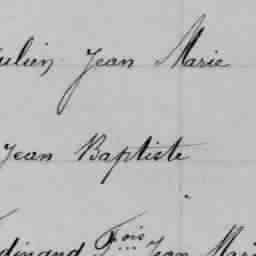 Julien Jean Marie
Jean Baptiste
Ferdinand Fois Jean Marie